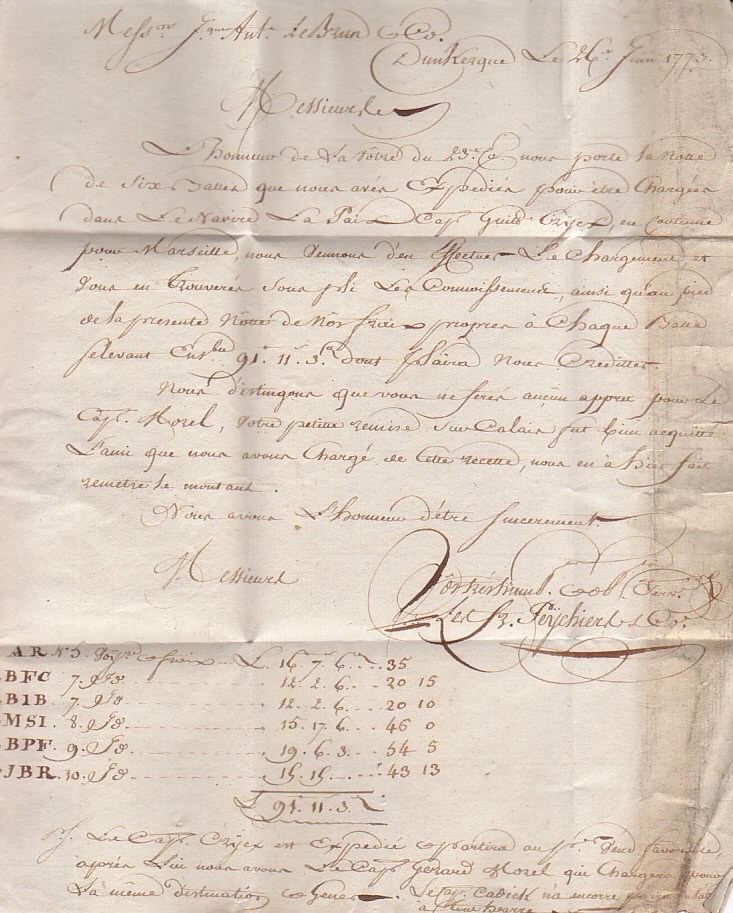 Mess.rs J.n Ant.e LeBrun & Co.
Dunkerque Le 26.e Juin 1773.
Messieurs
L'honneur de La Vôtre du 23.e C.t nous porte la Notte
de Six Balles que nous avés Expediés pour être Chargées
dans Le Navire La Paix Cap.e Guill. Crÿex, en Coutume
pour Marseille, nous venons d'en Effectuer Le Chargement et
Vous en Trouverés Sous pli Les Connoissements, ainsi qu'au pied
de la presente Nôtte de Nos fraix propres à Chaque Balle
s'elevant Ens.ble 91.# 11.s 3.d dont plaira Nous Crediter.
Nous distingons que vous ne ferés aucun appui pour Le
Cap.e Morel, Votre petite remise sur Calais fut bien acquitté
L'ami que nous avons Chargé de Cette recette, nous en à hier fait
remetre le montant.
Nous avons L'honneur d'être Sincerement.
Messieurs
Vos très humb. & ob. Serv.rs
Les fr. Peychiers & Co.
AR N.o 5. & fraix L. 16. 7. 6. 35
BFC 7. do 12. 2. 6. 20 15
BIB 7. do 12. 2. 6. 20 10
MSI. 8. do 15. 17. 6. 46 0
BPF. 9. do 19. 6. 3. 54 5
JBR. 10. do 15. 15. 43 13
L 91. 11. 3.
Ps. Le Cap.e Crÿex est Expedié & partira au p.r Vend favorable,
après Lui nous avons Le Cap.e Gerard Morel qui Chargera pour
La même destination & Genes. Le Cap. Cadick n'a encorre
à